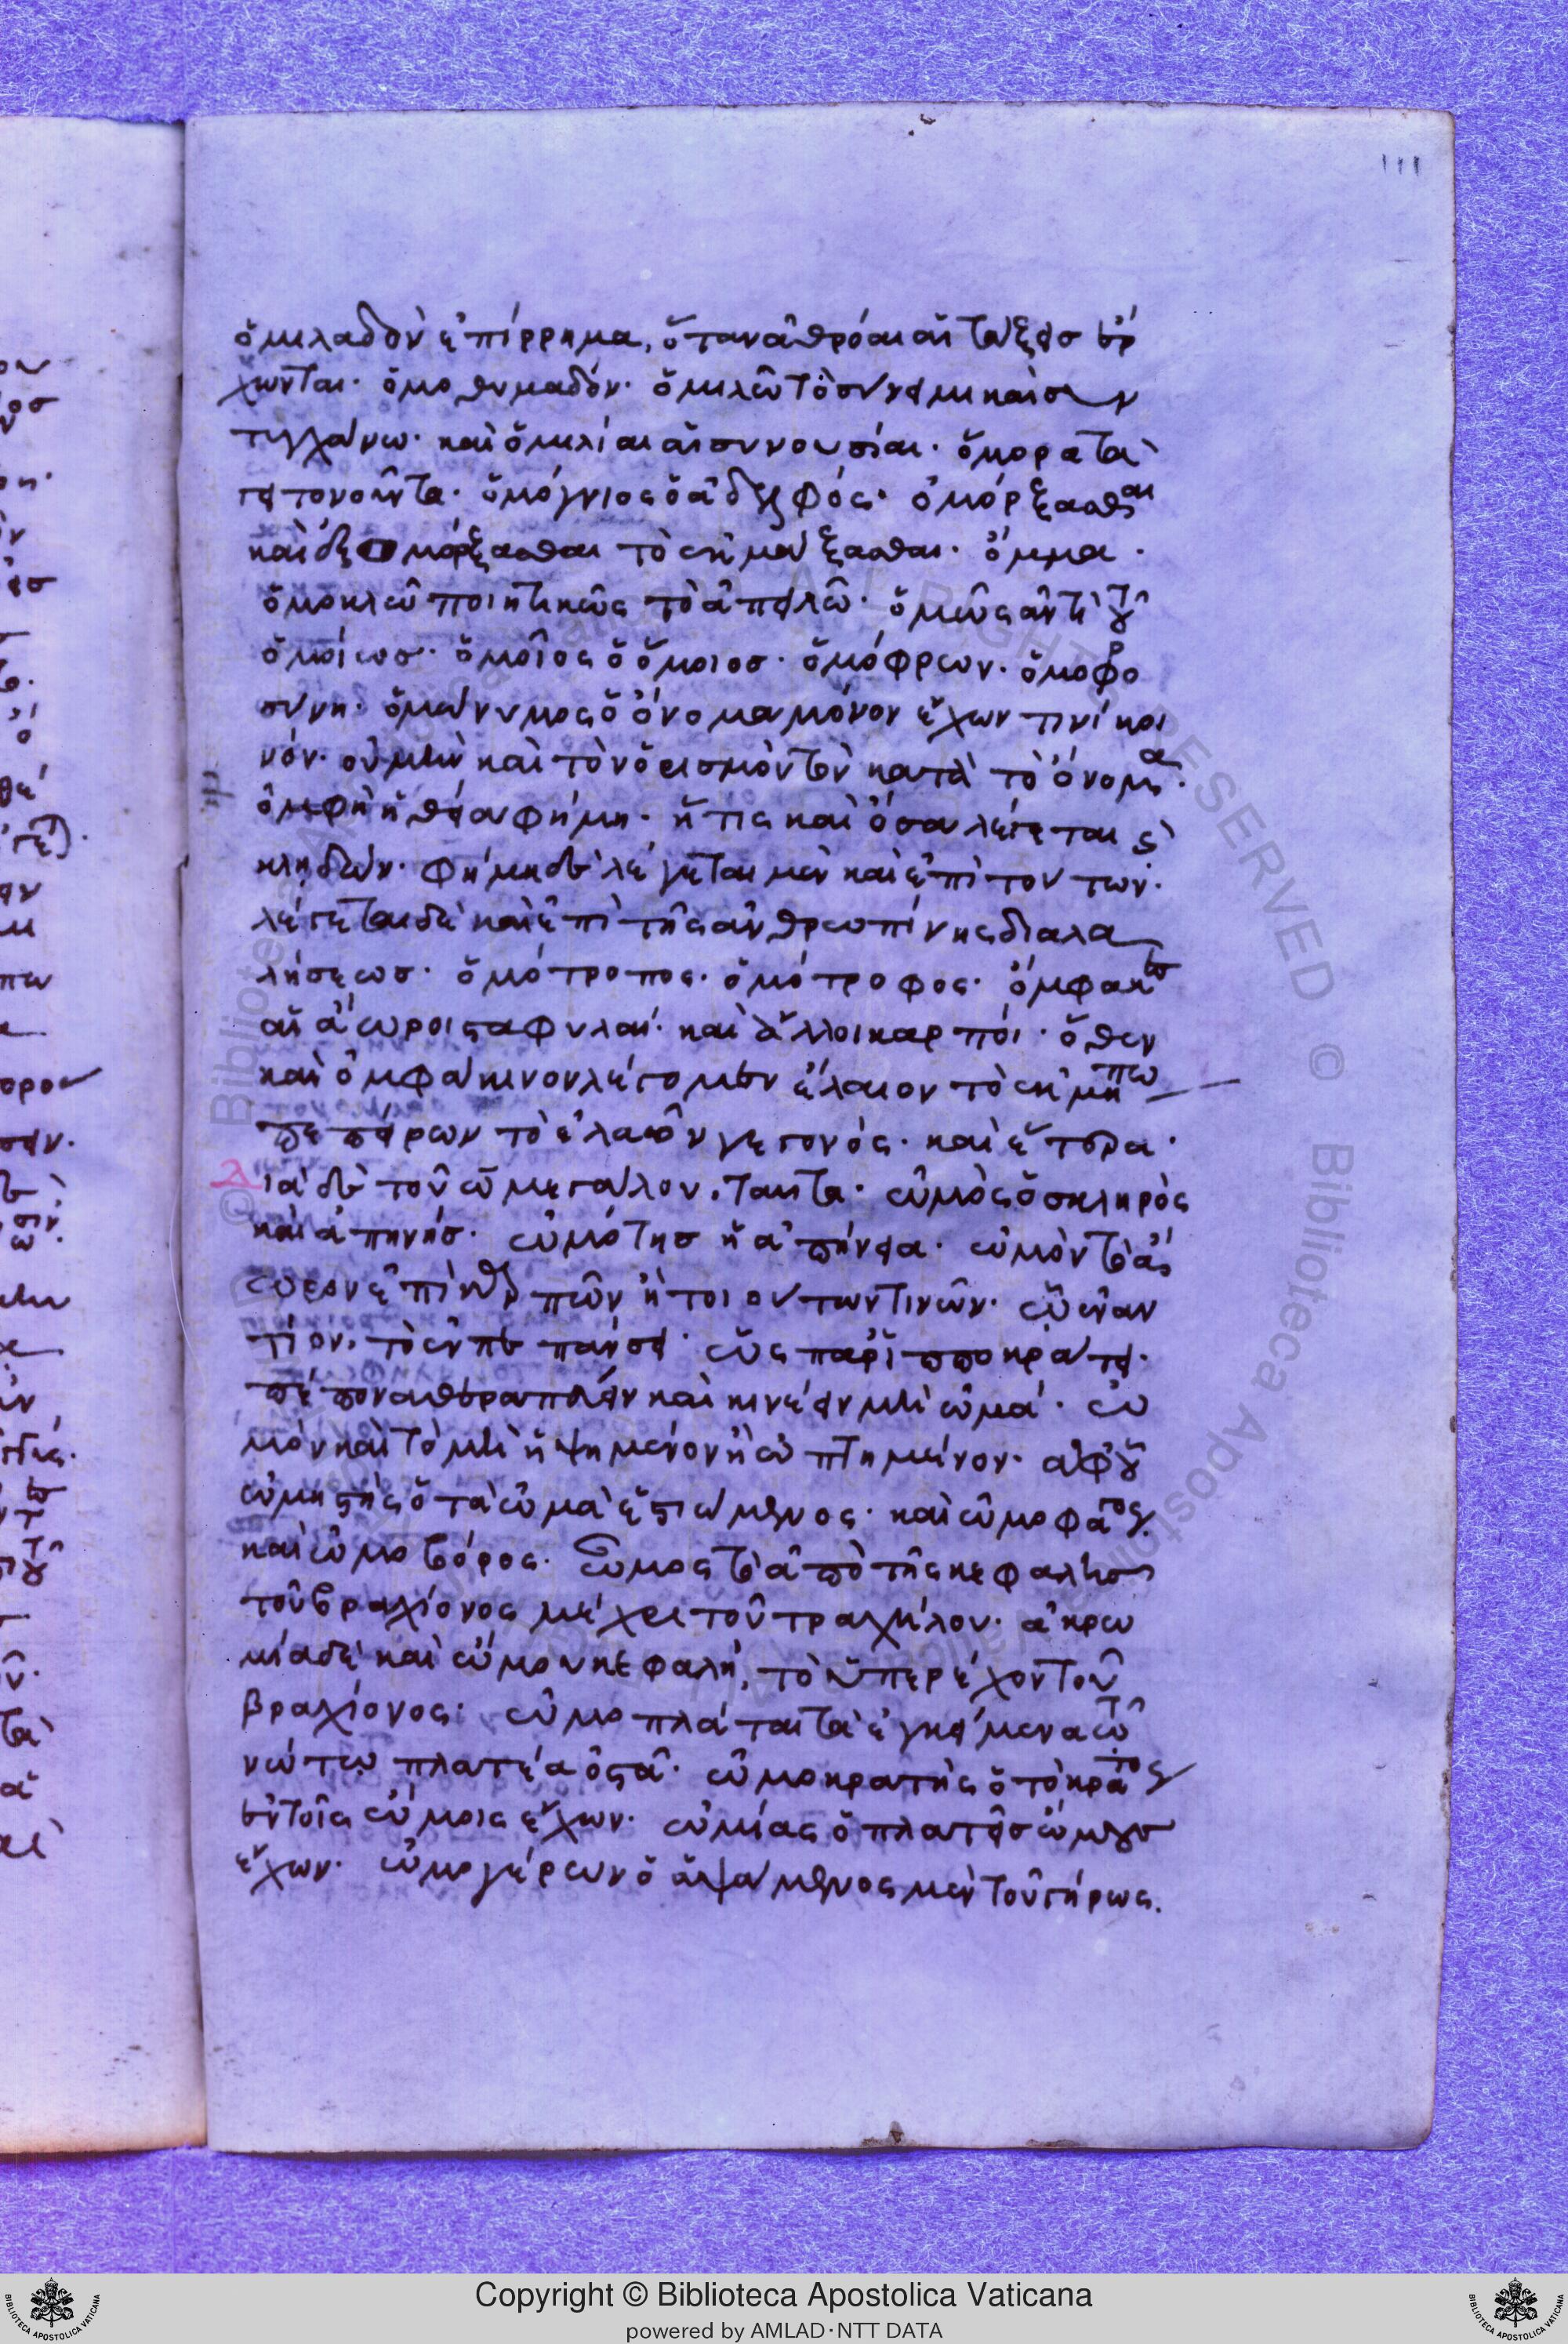 111
ὁμιλαδὸν ἐπίρρημα, ὅταν ἀθρόαι αἱ τάξεις ἔρ
χωνται· ὁμοθυμαδόν· ὁμιλῶ τὸ σύνειμι καὶ συν
τυγχάνω· καὶ ὁμιλίαι αἱ συνουσίαι· ὅμορα τὰ
γειτονοῦντα· ὁμόγνιος ὁ ἀδελφός· ὀμόρξασθαι
καὶ ἐξομόρξασθαι τὸ ἐκμάξασθαι· ὄμμα·
ὁμοκλῶ ποιητικῶς τὸ ἀπειλῶ· ὁμῶς ἀντὶ τοῦ
ὁμοίως· ὁμοῖος ὁ ὅμοιος· ὁμόφρων· ὁμοφρο
σύνη· ὁμώνυμος ὁ ὄνομα μόνον ἔχων τινὶ κοι
νόν· οὐ μὴν καὶ τὸν ὁρισμὸν τὸν κατὰ τὸ ὄνομα·
ὀμφὴ ἡ θεία φήμη· ἥτις καὶ ὄσσα λέγεται καὶ
κληδών· φήμη δὲ λέγεται μὲν καὶ ἐπὶ τούτων·
λέγεται δὲ καὶ ἐπὶ τῆς ἀνθρωπίνης διαλα
λήσεως· ὁμότροπος· ὁμότροφος· ὄμφακες
αἱ ἄωροι σταφυλαί· καὶ ἄλλοι καρποί· ὅθεν
καὶ ὀμφάκινον λέγομεν ἔλαιον τὸ ἐκ μήπω
πεπείρων τὸ ἐλαιῶν γεγονός· καὶ ἕτερα·
διὰ δὲ τοῦ ω μεγάλου, ταῦτα· ὠμὸς ὁ σκληρὸς
καὶ ἀπηνής· ὠμότης ἡ ἀπήνεια· ὠμὸν τὸ ἄ
ωρον ἐπὶ πεπόνων ἢ τοιούτων τινῶν· ᾧ ἐναν
τίον, τὸ ἐν πεπάνσει· ὡς παρ' ἱπποκράτει·
πέπονα θεραπεύειν καὶ κινέειν μὴ ὠμά· ὠ
μὸν καὶ τὸ μὴ ἡψημένον ἢ ὠπτημένον· ἀφ' οὗ
ὠμηστὴς ὁ τὰ ὠμὰ ἐστιώμενος· καὶ ὠμοφάγος
καὶ ὠμοβόρος· ὦμος τὸ ἀπὸ τῆς κεφαλῆς
τοῦ βραχίονος μέχρι τοῦ τραχήλου· ἀκρω
μία δὲ καὶ ὤμου κεφαλή, τὸ ὑπερέχον τοῦ
βραχίονος· ὠμοπλάται τὰ ἐγκείμενα τῷ
νώτῳ πλατέα ὀστᾶ· ὠμοκρατὴς ὁ τὸ κράτος
ἐν τοῖς ὤμοις ἔχων· ὠμίας ὁ πλατεῖς ὤμους
ἔχων· ὠμογέρων ὁ ἁψάμενος μὲν τοῦ γήρως.
© Biblioteca Apostolica Vaticana ALL RIGHTS RESERVED
Copyright © Biblioteca Apostolica Vaticana
powered by AMLAD·NTT DATA
BIBLIOTECA APOSTOLICA VATICANA
BIBLIOTECA APOSTOLICA VATICANA